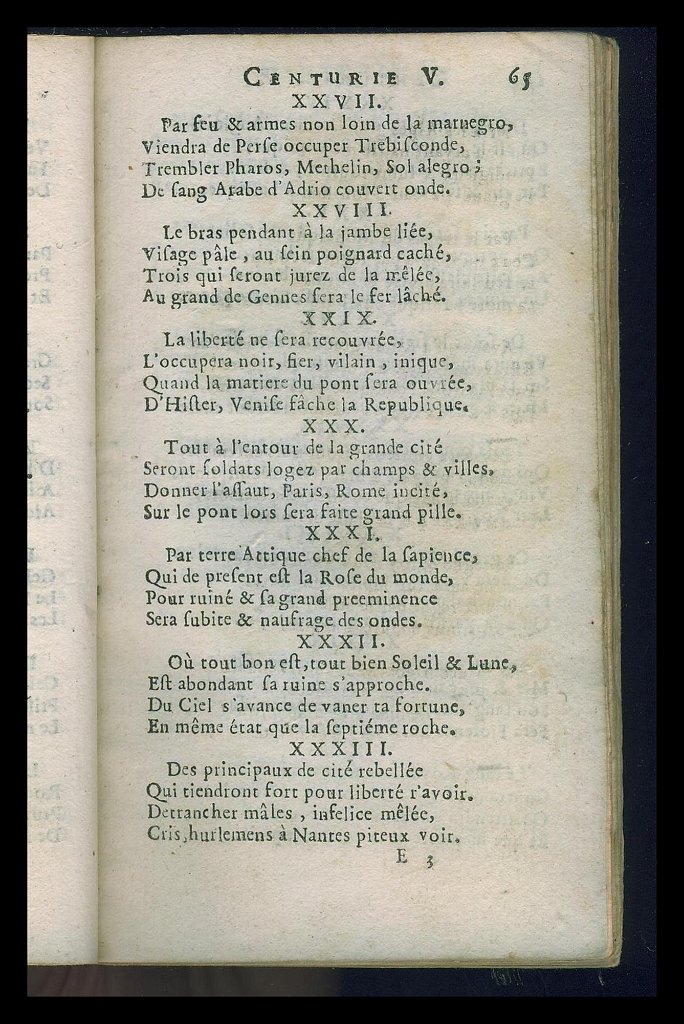 CENTURIE V. 65
XXVII.
Par feu & armes non loin de la marnegro,
Viendra de Perſe occuper Trebiſconde,
Trembler Pharos, Methelin, Sol alegro;
De ſang Arabe d'Adrio couvert onde.
XXVIII.
Le bras pendant à la jambe liée,
Viſage pâle, au ſein poignard caché,
Trois qui ſeront jurez de la mêlée,
Au grand de Gennes ſera le fer lâché.
XXIX.
La liberté ne ſera recouvrée,
L'occupera noir, fier, vilain, inique,
Quand la matiere du pont ſera ouvrée,
D'Hiſter, Veniſe fâche la Republique.
XXX.
Tout à l'entour de la grande cité
Seront ſoldats logez par champs & villes,
Donner l'aſſaut, Paris, Rome incité,
Sur le pont lors ſera faite grand pille.
XXXI.
Par terre Attique chef de la ſapience,
Qui de preſent eſt la Roſe du monde,
Pour ruiné & ſa grand preeminence
Sera ſubite & naufrage des ondes.
XXXII.
Où tout bon eſt, tout bien Soleil & Lune,
Eſt abondant ſa ruine s'approche.
Du Ciel s'avance de vaner ta fortune,
En même état que la ſeptiéme roche.
XXXIII.
Des principaux de cité rebellée
Qui tiendront fort pour liberté r'avoir.
Detrancher mâles, infelice mêlée,
Cris, hurlemens à Nantes piteux voir.
E 3